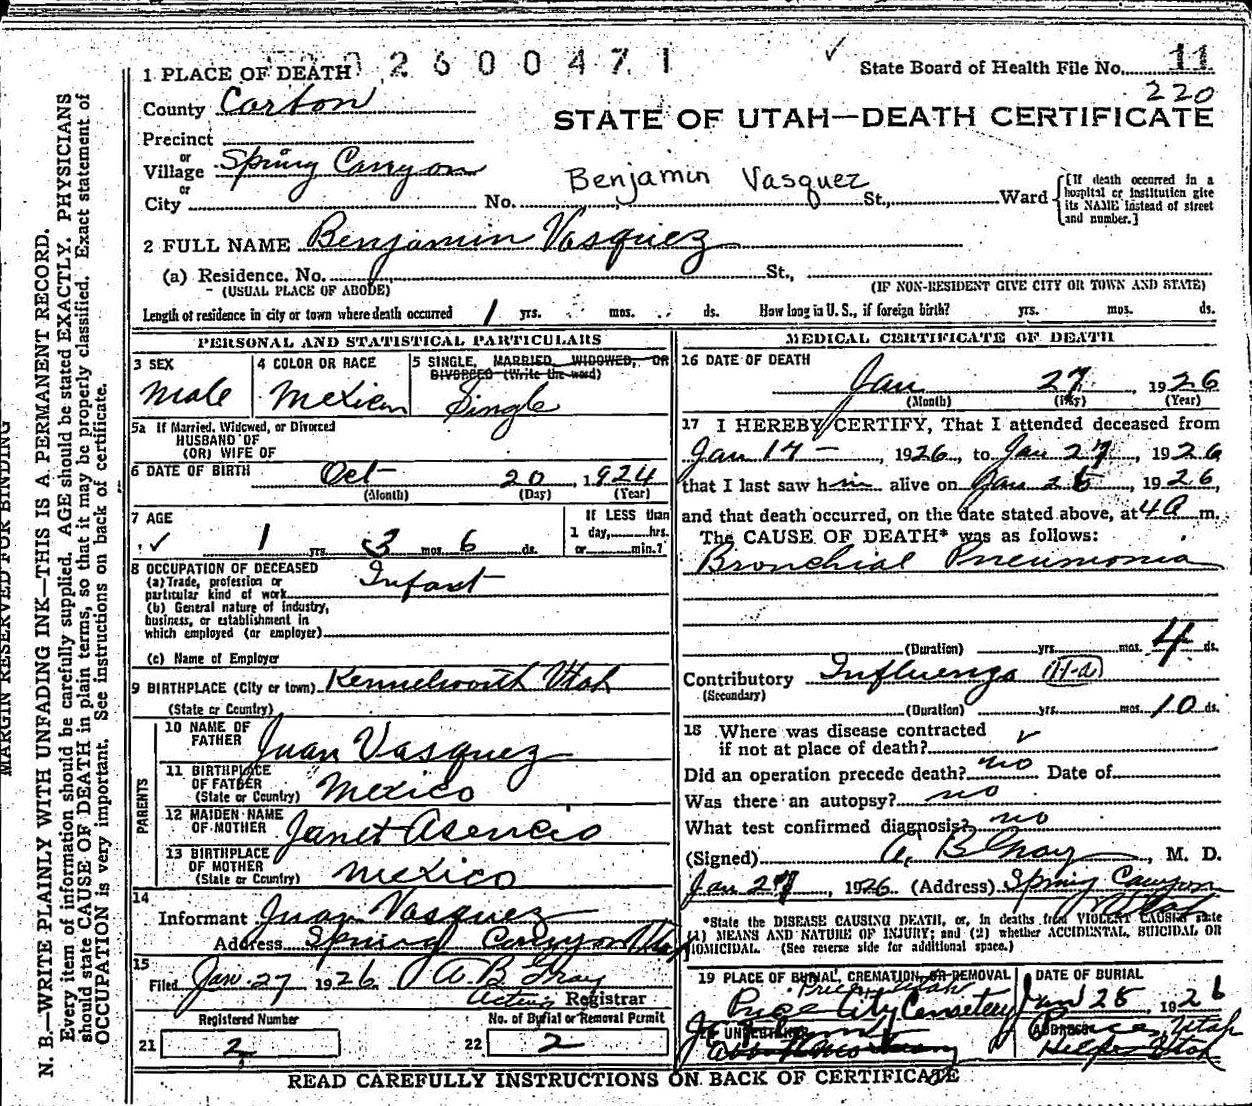 2600471
11
1 PLACE OF DEATH
State Board of Health File No.
220
County Carbon
STATE OF UTAH—DEATH CERTIFICATE
Precinct
or
Village Spring Canyon
or
Benjamin Vasquez
City No. St., Ward
[If death occurred in a
hospital or institution give
its NAME instead of street
and number.]
2 FULL NAME Benjamin Vasquez
(a) Residence. No. St.,
(USUAL PLACE OF ABODE) (IF NON-RESIDENT GIVE CITY OR TOWN AND STATE)
Length of residence in city or town where death occurred 1 yrs. mos. ds. How long in U. S., if foreign birth? yrs. mos. ds.
PERSONAL AND STATISTICAL PARTICULARS
3 SEX
Male
4 COLOR OR RACE
Mexican
5 SINGLE, MARRIED, WIDOWED, OR
DIVORCED (Write the word)
Single
5a If Married, Widowed, or Divorced
HUSBAND OF
(OR) WIFE OF
6 DATE OF BIRTH Oct 20, 1924
(Month) (Day) (Year)
7 AGE
1 yrs. 3 mos. 6 ds.
If LESS than
1 day, hrs.
or min.?
8 OCCUPATION OF DECEASED
(a) Trade, profession or
particular kind of work Infant
(b) General nature of industry,
business, or establishment in
which employed (or employer)
(c) Name of Employer
9 BIRTHPLACE (City or town) Kennelworth Utah
(State or Country)
PARENTS
10 NAME OF
FATHER Juan Vasquez
11 BIRTHPLACE
OF FATHER
(State or Country) Mexico
12 MAIDEN NAME
OF MOTHER Janet Asencio
13 BIRTHPLACE
OF MOTHER
(State or Country) Mexico
14
Informant Juan Vasquez
Address Spring Canyon Utah
15
Filed Jan. 27 1926 A. B. Gray
Acting Registrar
Registered Number
21 2
No. of Burial or Removal Permit
22 2
MEDICAL CERTIFICATE OF DEATH
16 DATE OF DEATH
Jan 27, 1926
(Month) (Day) (Year)
17 I HEREBY CERTIFY, That I attended deceased from
Jan 17, 1926, to Jan 27, 1926
that I last saw him alive on Jan 26, 1926,
and that death occurred, on the date stated above, at 4a m.
The CAUSE OF DEATH* was as follows:
Bronchial Pneumonia
(Duration) yrs. mos. 4 ds.
Contributory Influenza 11-a
(Secondary)
(Duration) yrs. mos. 10 ds.
18 Where was disease contracted
if not at place of death?
Did an operation precede death? no Date of
Was there an autopsy? no
What test confirmed diagnosis? no
(Signed) A. B. Gray, M. D.
Jan 27, 1926 (Address) Spring Canyon
Utah
*State the DISEASE CAUSING DEATH, or, in deaths from VIOLENT CAUSES state
(1) MEANS AND NATURE OF INJURY; and (2) whether ACCIDENTAL, SUICIDAL OR
HOMICIDAL. (See reverse side for additional space.)
19 PLACE OF BURIAL, CREMATION, OR REMOVAL
Price Utah
Price City Cemetery
DATE OF BURIAL
Jan 28, 1926
20 UNDERTAKER
ADDRESS
Price, Utah
Helper Utah
READ CAREFULLY INSTRUCTIONS ON BACK OF CERTIFICATE
MARGIN RESERVED FOR BINDING
N. B.—WRITE PLAINLY WITH UNFADING INK—THIS IS A PERMANENT RECORD.
Every item of information should be carefully supplied. AGE should be stated EXACTLY. PHYSICIANS
should state CAUSE OF DEATH in plain terms, so that it may be properly classified. Exact statement of
OCCUPATION is very important. See instructions on back of certificate.